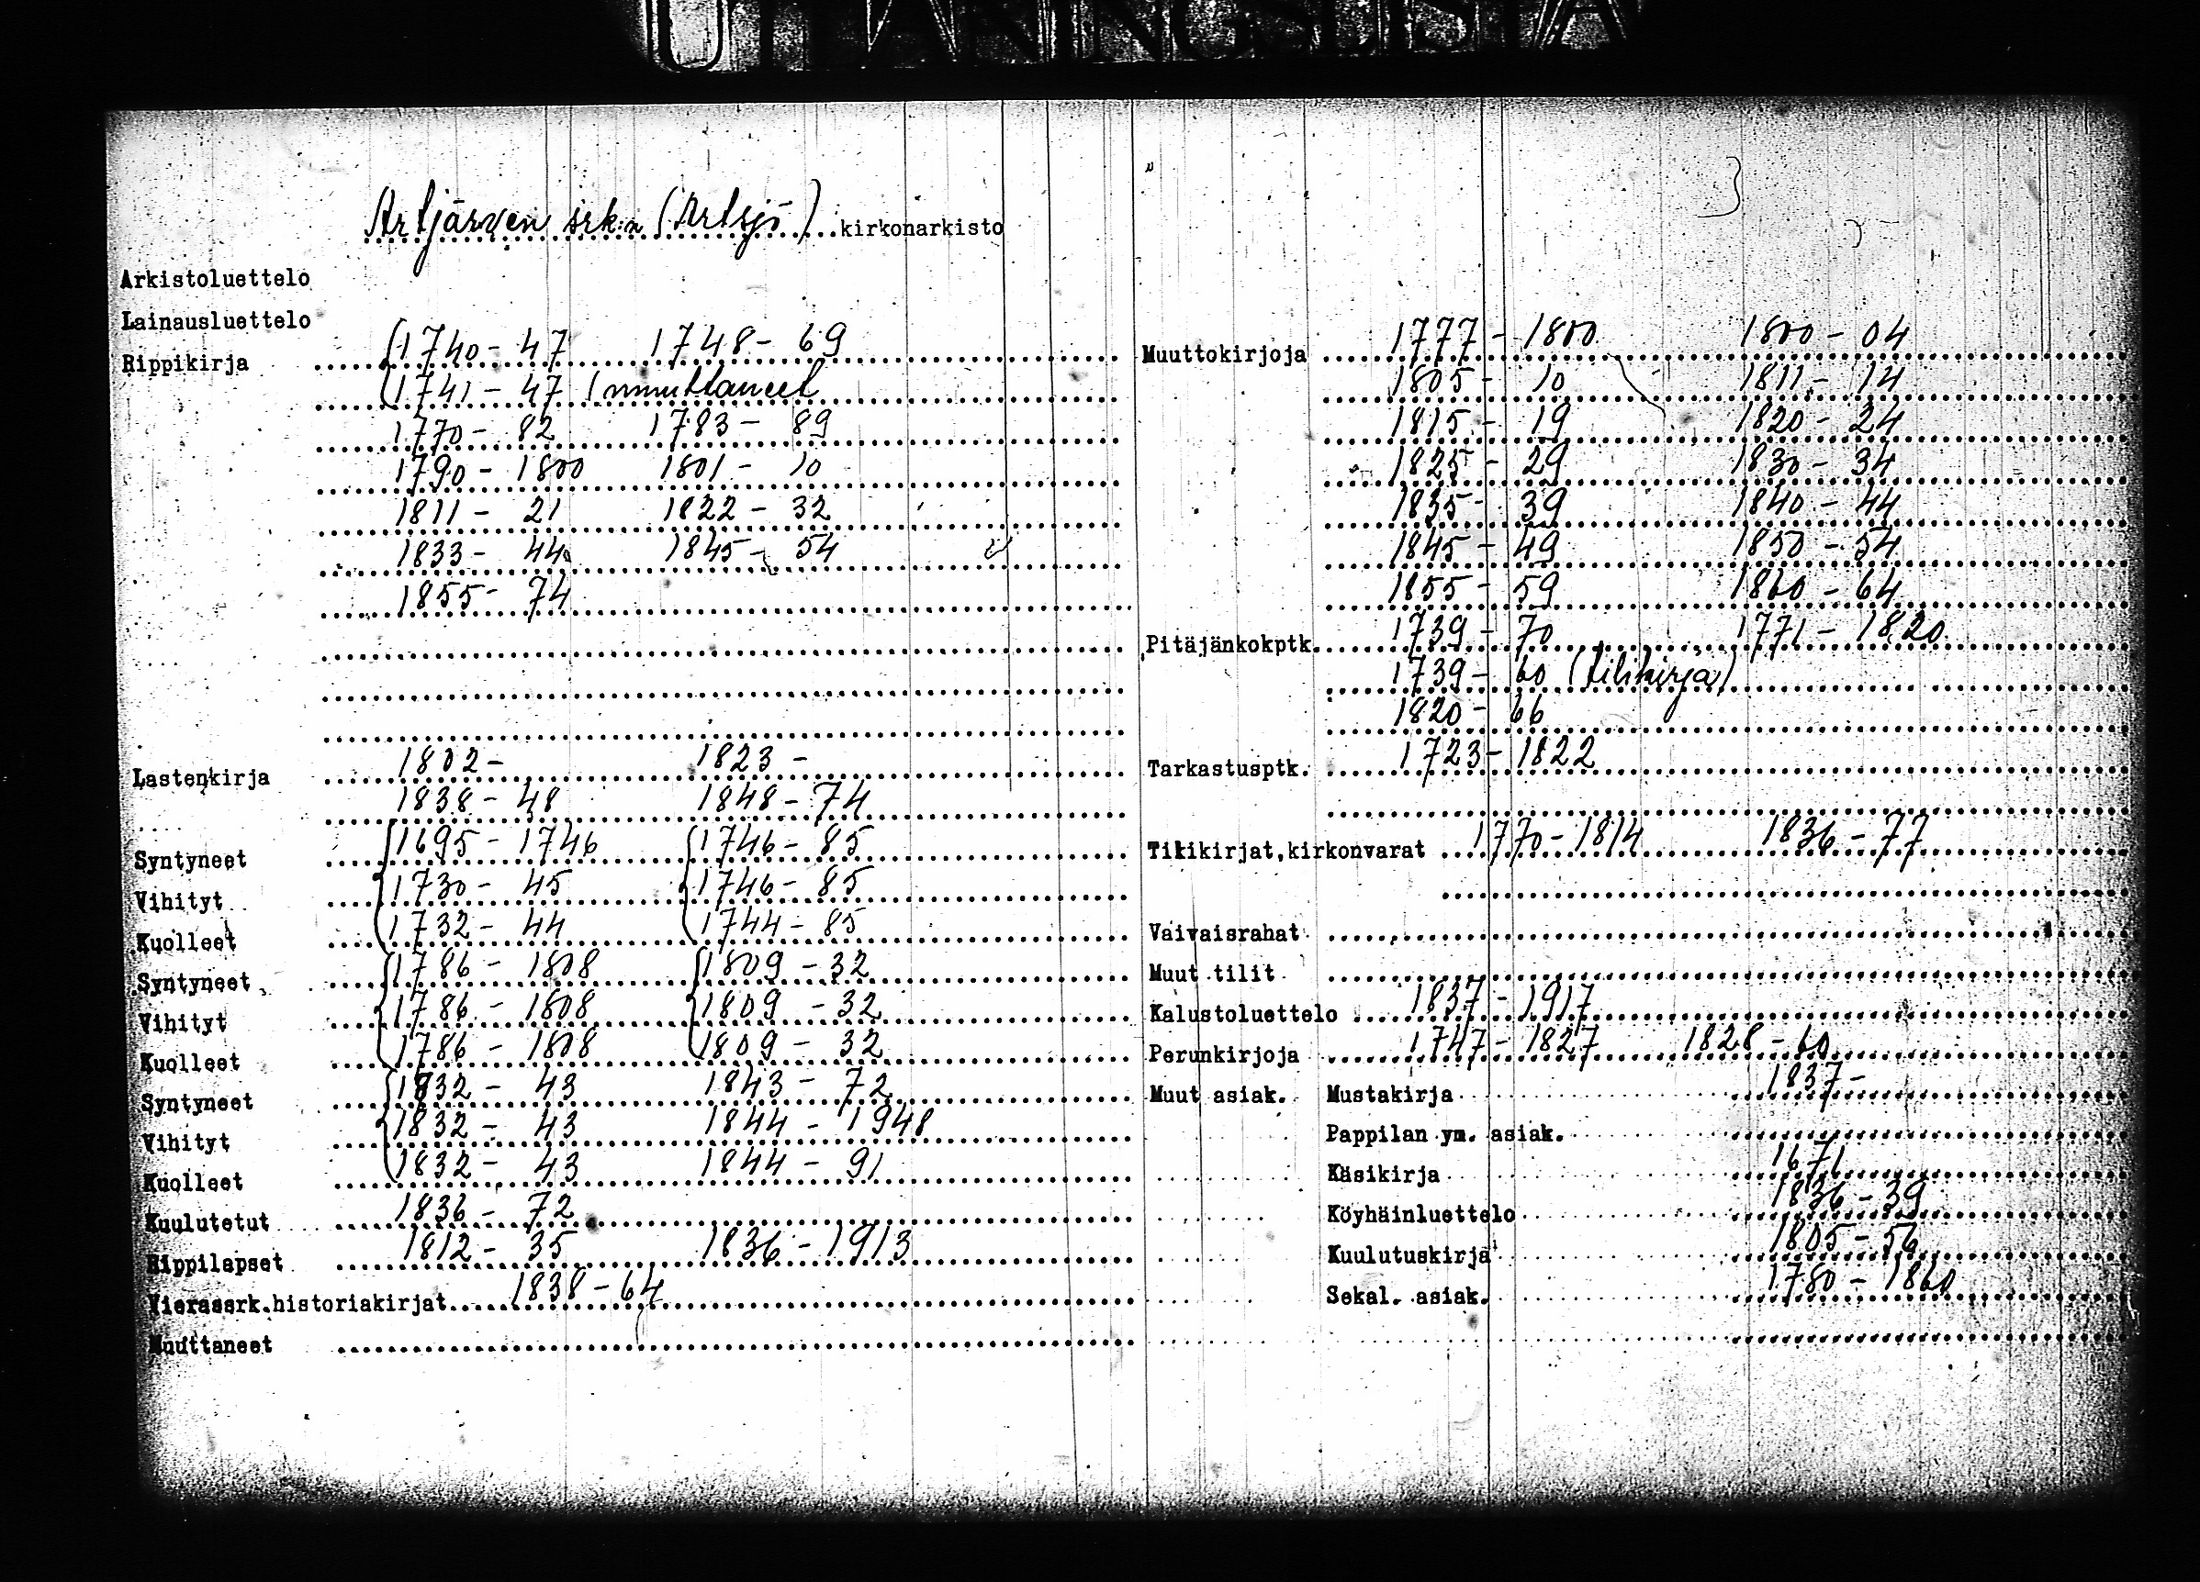 UTANINGSLISTA
Artjärven srk:n (Artsjö) kirkonarkisto
Arkistoluettelo
Lainausluettelo
Rippikirja 1740 - 47 1748 - 69
1741 - 47 (muuttaneet
1770 - 82 1783 - 89
1790 - 1800 1801 - 10
1811 - 21 1822 - 32
1833 - 44 1845 - 54
1855 - 74
Lastenkirja 1802 - 1823 -
1838 - 48 1848 - 74
Syntyneet 1695 - 1746 1746 - 85
Vihityt 1730 - 45 1746 - 85
Kuolleet 1732 - 44 1744 - 85
Syntyneet 1786 - 1808 1809 - 32
Vihityt 1786 - 1808 1809 - 32
Kuolleet 1786 - 1808 1809 - 32
Syntyneet 1832 - 43 1843 - 72
Vihityt 1832 - 43 1844 - 1948
Kuolleet 1832 - 43 1844 - 91
Kuulutetut 1836 - 72
Rippilapset 1812 - 35 1836 - 1913
Vierassrk.historiakirjat 1838 - 64
Muuttaneet
Muuttokirjoja 1777 - 1800 1800 - 04
1805 - 10 1811 - 14
1815 - 19 1820 - 24
1825 - 29 1830 - 34
1835 - 39 1840 - 44
1845 - 49 1850 - 54
1855 - 59 1860 - 64
Pitäjänkokptk. 1739 - 70 1771 - 1820
1739 - 60 (tilikirja)
1820 - 66
Tarkastusptk. 1723 - 1822
Tilikirjat,kirkonvarat 1770 - 1814 1836 - 77
Vaivaisrahat
Muut tilit
Kalustoluettelo 1837 - 1917
Perunkirjoja 1747 - 1827 1828 - 60
Muut asiak. Mustakirja 1837 -
Pappilan ym. asiak.
Käsikirja 1671
Köyhäinluettelo 1836 - 39
Kuulutuskirja 1805 - 56
Sekal. asiak. 1780 - 1860